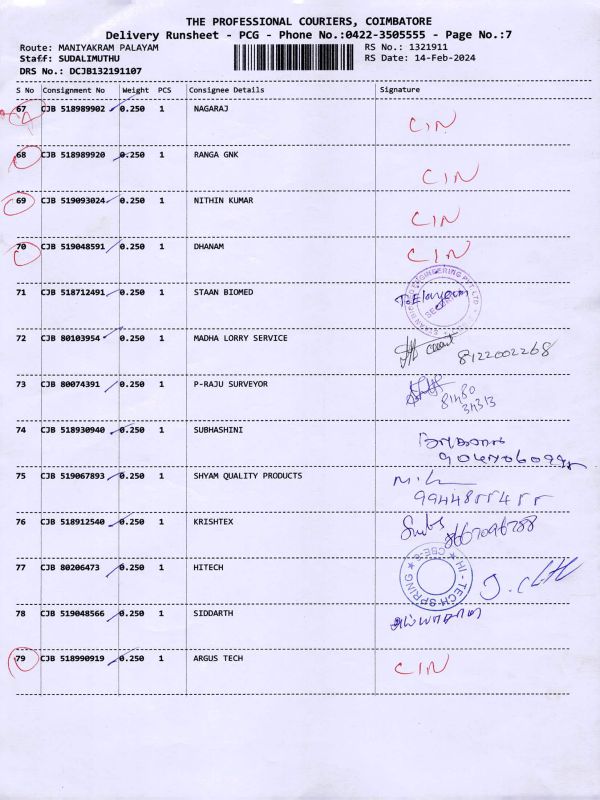 THE PROFESSIONAL COURIERS, COIMBATORE
Delivery Runsheet - PCG - Phone No.:0422-3505555 - Page No.:7
Route: MANIYAKRAM PALAYAM RS No.: 1321911
Staff: SUDALIMUTHU RS Date: 14-Feb-2024
DRS No.: DCJB132191107
S No Consignment No Weight PCS Consignee Details Signature
67 CJB 518989902 0.250 1 NAGARAJ CIN
68 CJB 518989920 0.250 1 RANGA GNK CIN
69 CJB 519093024 0.250 1 NITHIN KUMAR CIN
70 CJB 519048591 0.250 1 DHANAM CIN
71 CJB 518712491 0.250 1 STAAN BIOMED
72 CJB 80103954 0.250 1 MADHA LORRY SERVICE 8122002268
73 CJB 80074391 0.250 1 P-RAJU SURVEYOR
74 CJB 518930940 0.250 1 SUBHASHINI
75 CJB 519067893 0.250 1 SHYAM QUALITY PRODUCTS
9944855455
76 CJB 518912540 0.250 1 KRISHTEX
77 CJB 80206473 0.250 1 HITECH HI-TECH SPRING
78 CJB 519048566 0.250 1 SIDDARTH
79 CJB 518990919 0.250 1 ARGUS TECH CIN